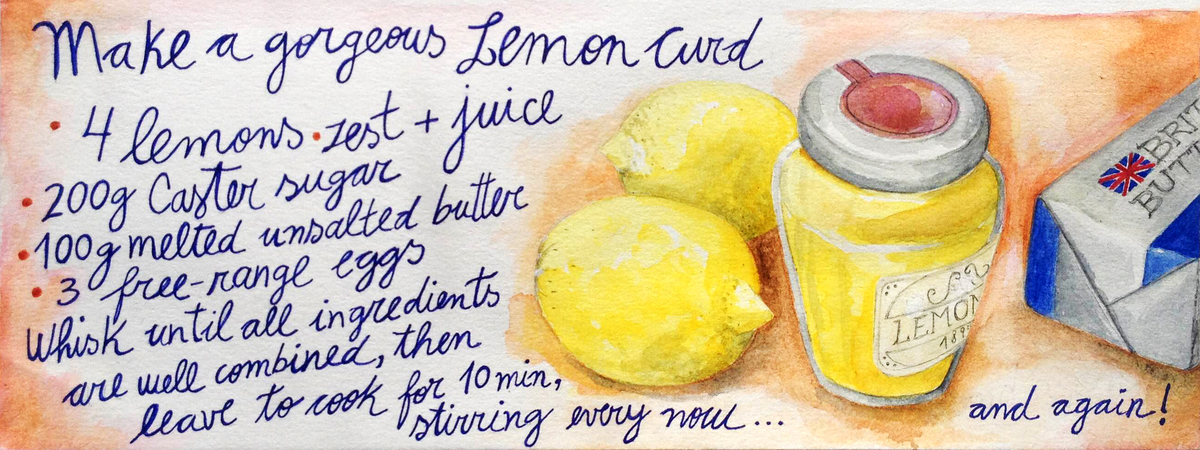 Make a gorgeous Lemon Curd
• 4 lemons • zest + juice
• 200g Caster sugar
• 100g melted unsalted butter
• 3 free-range eggs
Whisk until all ingredients
are well combined, then
leave to cook for 10 min,
stirring every now...
and again!
LEMON
1899
BRIT
BUTT